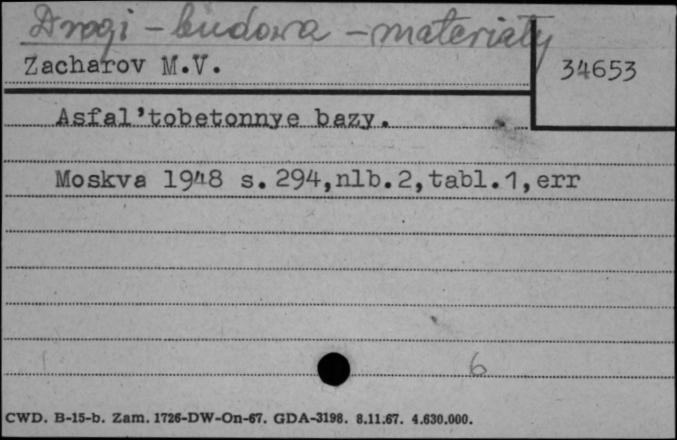 Drogi - budowa - materiały
Zacharov M.V.
34653
Asfal'tobetonnye bazy.
Moskva 1948 s. 294,nlb.2,tabl.1,err
6
CWD. B-15-b. Zam. 1726-DW-On-67. GDA-3198. 8.11.67. 4.630.000.